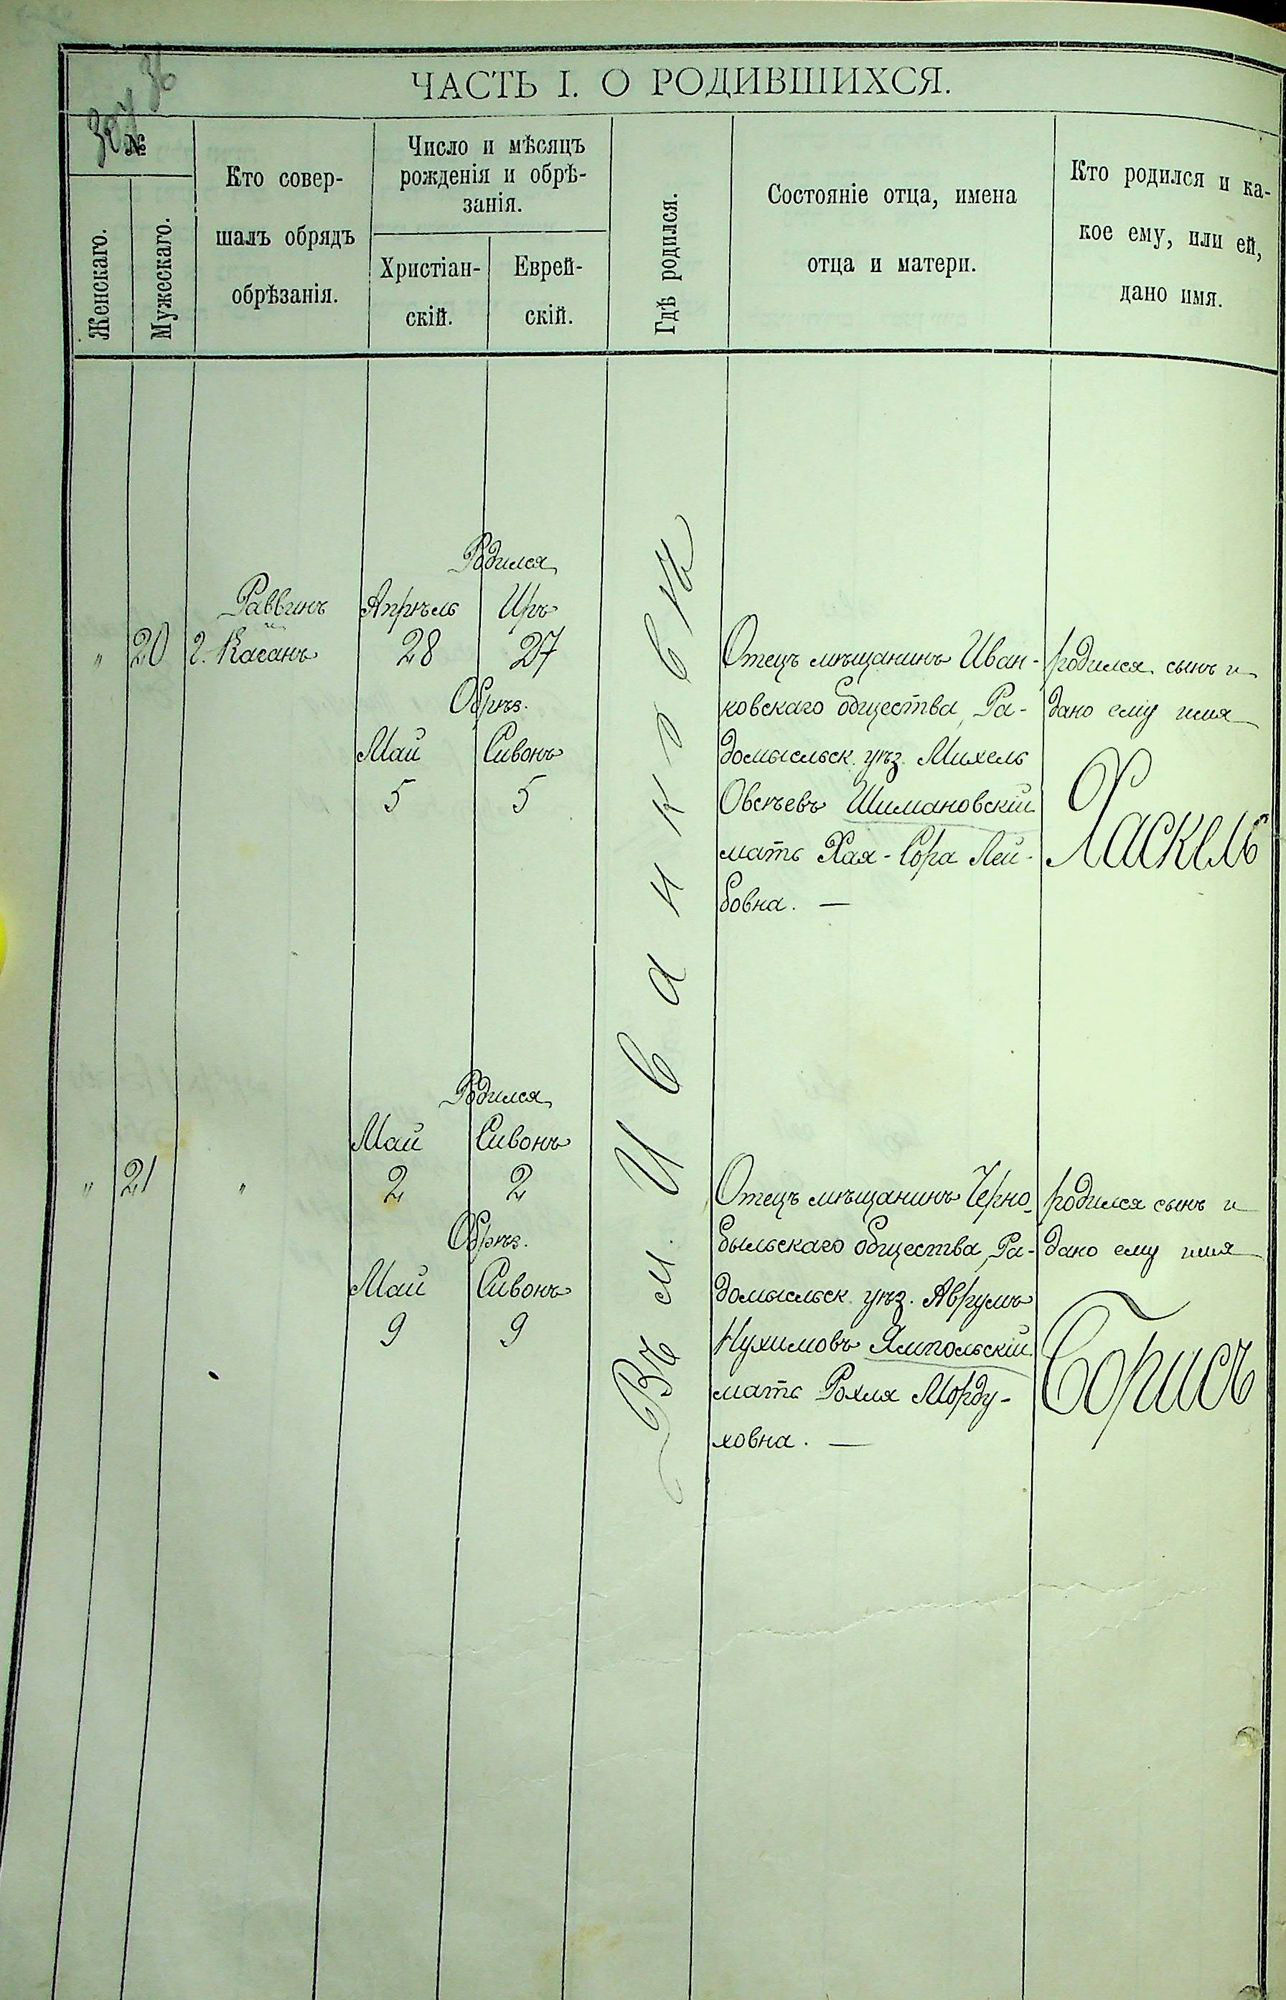 ЧАСТЬ I. О РОДИВШИХСЯ.
№
Женскаго.
Мужескаго.
Кто совер-
шалъ обрядъ
обрѣзанія.
Число и мѣсяцъ
рожденія и обрѣ-
занія.
Христіан-
скій.
Еврей-
скій.
Гдѣ родился.
Состояніе отца, имена
отца и матери.
Кто родился и ка-
кое ему, или ей,
дано имя.
Родился
Раввинъ Апрѣль Иръ
" 20 г. Каганъ 28 27
Обрѣз.
Май Сивонъ
5 5
Въ м. Иванковѣ
Отецъ мѣщанинъ Иван-
ковскаго общества, Ра-
домысльск. уѣз. Михель
Овсѣевъ Шимановскій
мать Хая-Сора Лей-
бовна. —
родился сынъ и
дано ему имя
Хаскель
Родился
Май Сивонъ
" 21 " 2 2
Обрѣз.
Май Сивонъ
9 9
Отецъ мѣщанинъ Черно-
быльскаго общества, Ра-
домысльск. уѣз. Аврумъ
Нухимовъ Ямпольскій
мать Рохля Морду-
ховна. —
родился сынъ и
дано ему имя
Борисъ